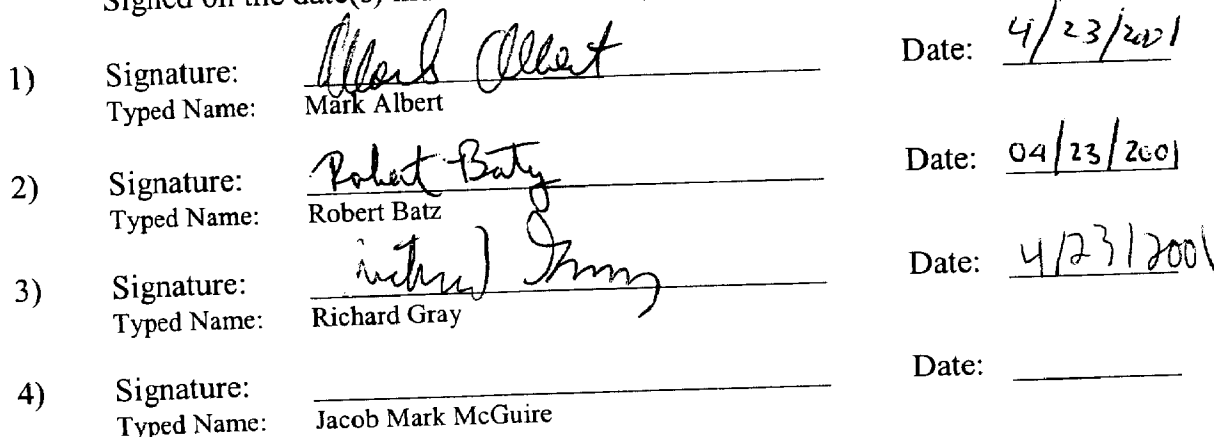 Signed on the date(s)
1) Signature: Mark Albert Date: 4/23/2001
Typed Name: Mark Albert
2) Signature: Robert Batz Date: 04/23/2001
Typed Name: Robert Batz
3) Signature: Richard Gray Date: 4/23/2001
Typed Name: Richard Gray
4) Signature: Date:
Typed Name: Jacob Mark McGuire